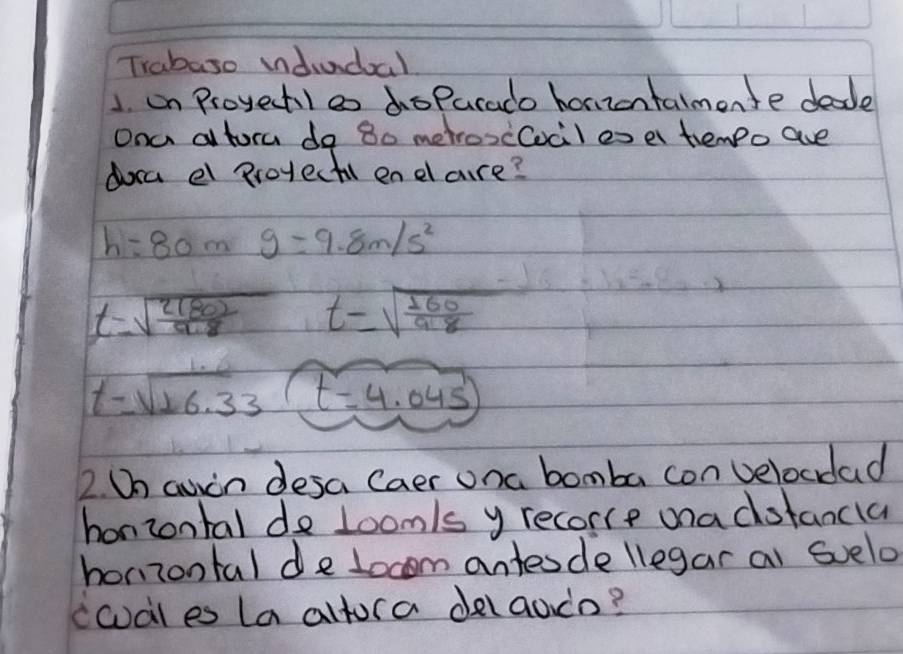 Trabaso individual
1. Un Proyectil es disParado horizontalmente desde
Una altura de 80 metros¿Cuál es el tiempo que
dura el Proyectil en el aire?
h=80m g=9.8m/s²
t=√2(80)/9.8 t=√160/9.8
t=√16.33 t=4.04s
2. Un avión desa caer una bomba con velocidad
horizontal de 100m/s y recorre una distancia
horizontal de 1000m antes de llegar al suelo
¿Cuál es la altura del avión?